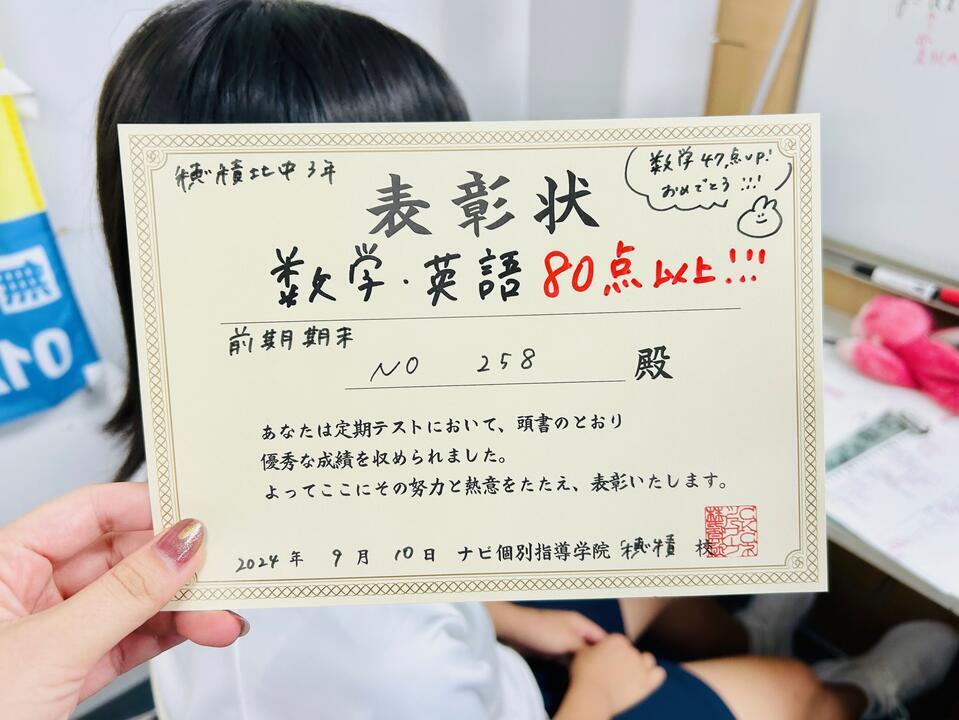 穂積北中3年
表彰状
数学47点UP!
おめでとう!!!
数学・英語 80点以上!!!
前期期末
NO 258 殿
あなたは定期テストにおいて、頭書のとおり
優秀な成績を収められました。
よってここにその努力と熱意をたたえ、表彰いたします。
2024年 9月 10日 ナビ個別指導学院 穂積 校
無